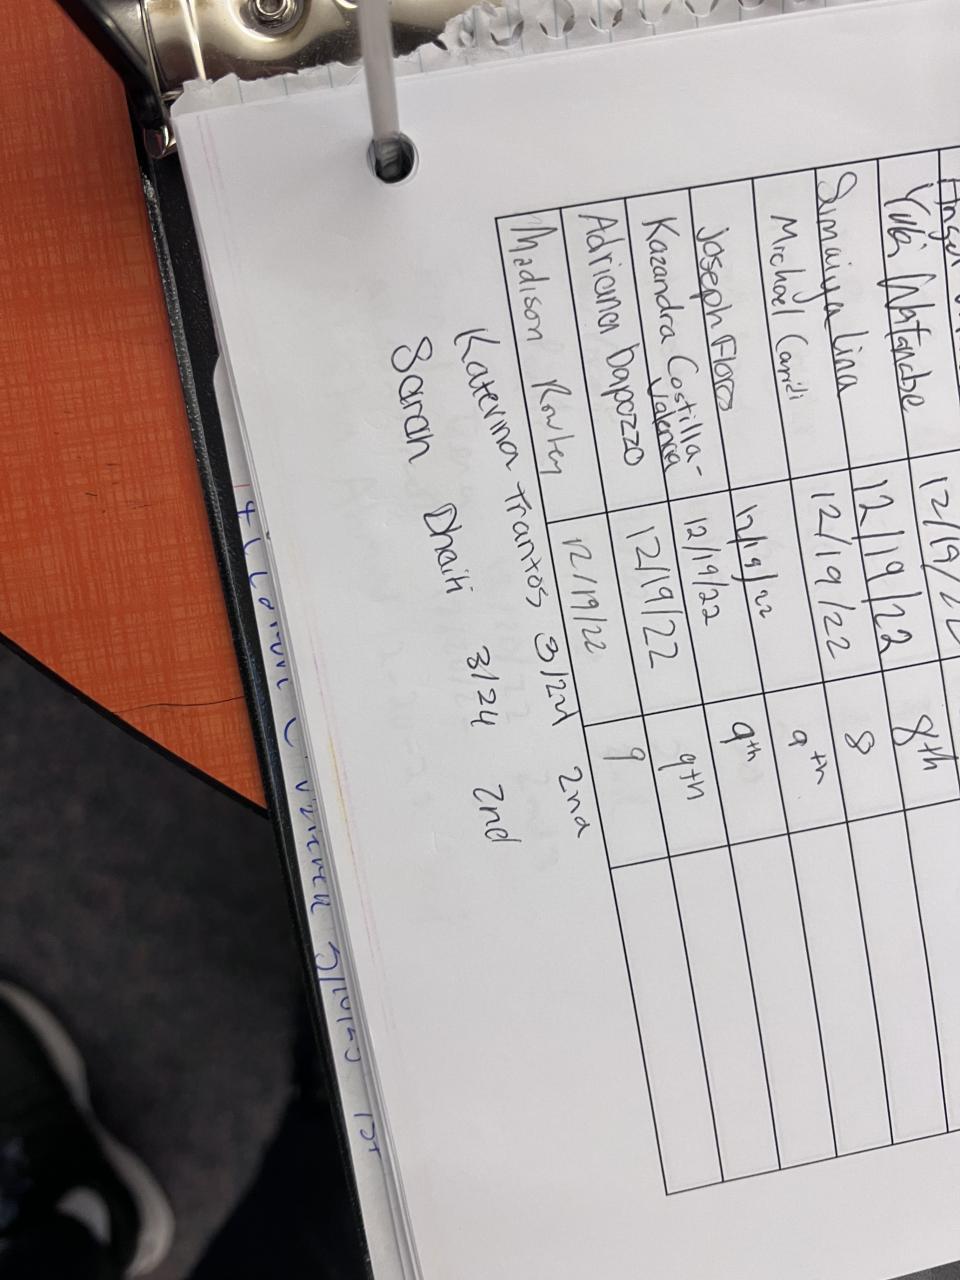 12/19/22
Yuki Watanabe 12/19/22 8th
Sumaiya Lina 12/19/22 8
Michael 12/19/22 9th
Joseph Flores 12/19/22 9th
Kazandra Costilla-Valencia 12/19/22 9th
Adriana Dapozzo 12/19/22 9
Madison Rowley 12/19/22
Katerina Trantos 3/2nd 2nd
Sarah Dhaiti 3/24 2nd